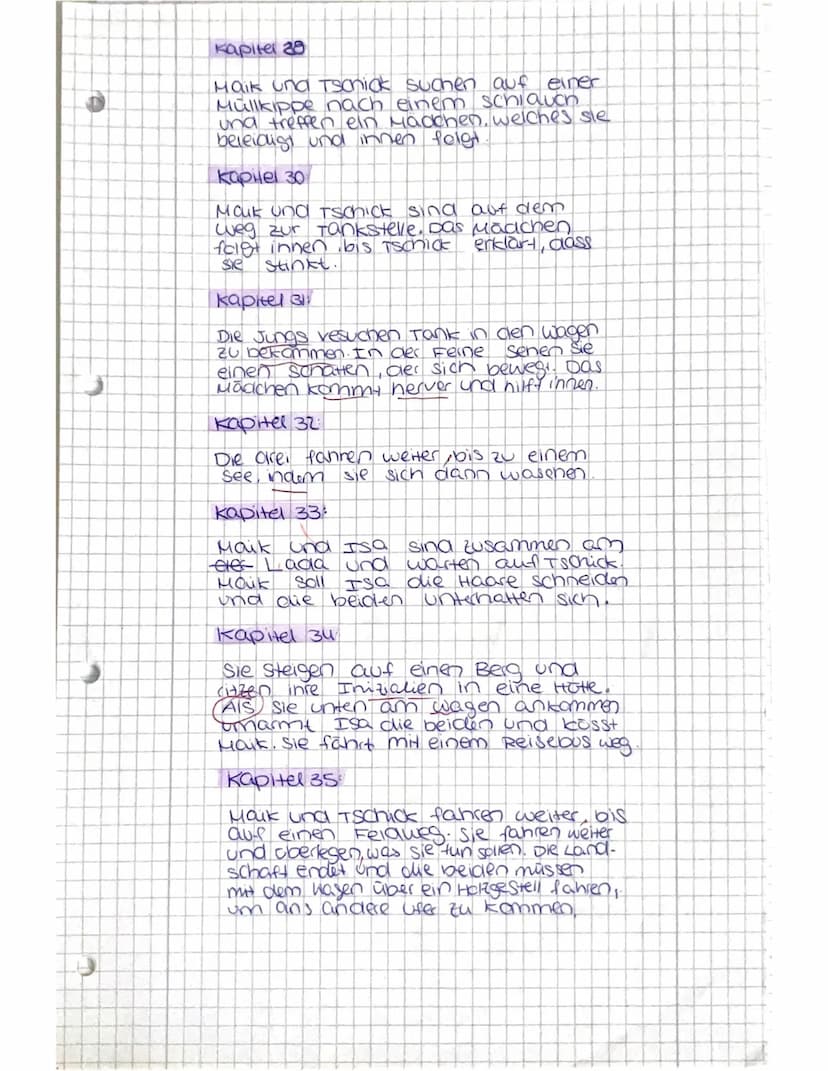 Kapitel 29
Maik und Tschick suchen auf einer
Müllkippe nach einem schlauch
und treffen ein Mädchen, welches sie
beleidigt und ihnen folgt.
Kapitel 30
Maik und Tschick sind auf dem
weg zur Tankstelle. Das Mädchen
folgt ihnen, bis Tschick erklärt, dass
sie stinkt.
Kapitel 31:
Die Jungs vesuchen Tank in den wagen
zu bekommen. In der Feine sehen sie
einen schatten, der sich bewegt. Das
Mädchen kommt hervor und hilft ihnen.
Kapitel 32:
Die drei fahren weiter, bis zu einem
see, indem sie sich dann waschen.
Kapitel 33:
Maik und Isa sind zusammen am
Lada und warten auf Tschick.
Maik soll Isa die Haare schneiden
und die beiden unterhalten sich.
Kapitel 34
Sie steigen auf einen Berg und
ritzen ihre Inizialien in eine Hütte.
Als sie unten am wagen ankommen
umarmt Isa die beiden und küsst
Maik. Sie fährt mit einem Reisebus weg.
Kapitel 35:
Maik und Tschick fahren weiter, bis
auf einen Feldweg. Sie fahren weiter
und überlegen, was sie tun sollen. Die Land-
schaft endet und die beiden müssen
mit dem Wagen über ein Holzgestell fahren,
um ans andere Ufer zu kommen.